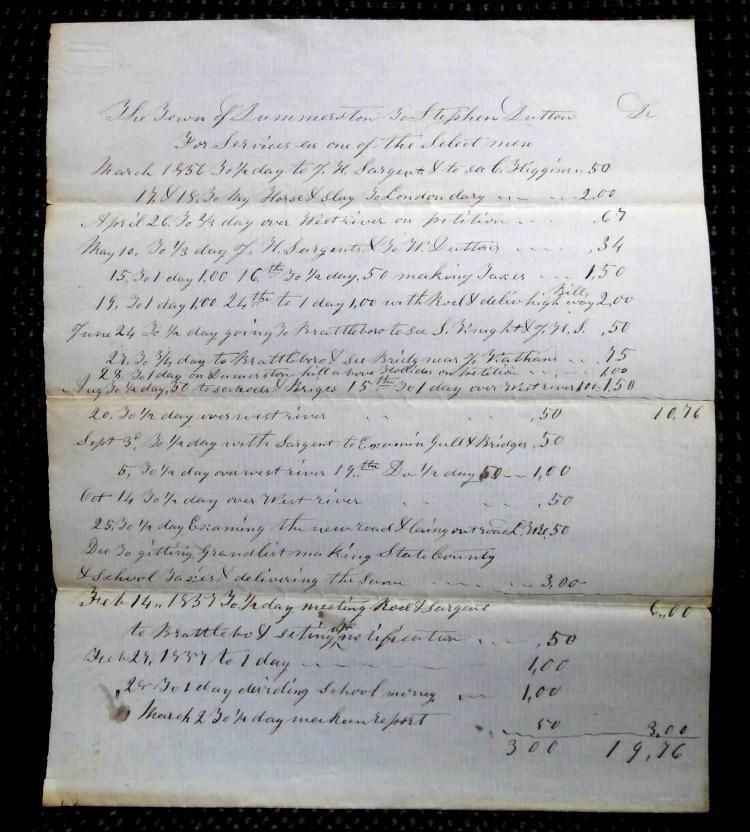 The Town of Dummerston To Stephen Dutton Dr
For Services as one of the Select men
March 1856 To ½ day to J. H. Sargent & to see C. Higgins .50
17 & 18 To My Horse & slay To Londondary 2.00
April 26 To ⅔ day over West river on petition .67
May 10, To ⅓ day J. H. Sargents & To W. Duttons .34
15, To 1 day 1,00 16th To ½ day, 50 making Taxes 1,50
19, To 1 day 1,00 24th to 1 day 1,00 with Roel & deliv high way Bills 2,00
June 24 To ½ day going To Brattleboro to see S. Knight & J. H. S. ,50
27, To ¾ day to Brattleboro & see Bridg near J. 75
28, To 1 day on Dumerston hill above on petition 100
Aug To ½ day, 50 to see roads & Briges 15th To 1 day over West river 100 1,50
10,76
20, To ½ day over west river ,50
Sept 3d To ½ day with Sargent to Examin Gull & Bridges ,50
5, To ½ day over west river 19th Do ½ day 50 1,00
Oct 14 To ½ day over West river .50
25, To ½ day Examing the new road & laing out road 50
Dec To gitting Grand list making State County
& School Taxes & delivering the Same 3,00
6,00
Feb 14, 1857 To ½ day meeting Roel & Sargent
to Brattlebo & seting up notification ,50
Feb 27, 1857 to 1 day 1,00
,28 To 1 day deviding School money 1,00
March 2 To ½ day makeun report 50 3,00
300 19,76